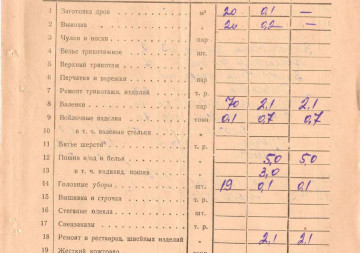 1 Заготовка дров м³ 20 0,1 —
2 Вывозка " 20 0,2 —
3 Чулки и носки пар
4 Белье трикотажное шт.
5 Верхний трикотаж "
6 Перчатки и варежки пар
7 Ремонт трикотажн. изделий т. р.
8 Валенки пар 70 2,1 2,1
9 Войлочные изделия тонн 0,1 0,7 0,7
10 в т. ч. валяные стельки "
11 Битье шерсти т. р.
12 Пошив и белья " 5,0 5,0
13 в т. ч. пошив " 3,0
14 Головные уборы шт. 19 0,1 0,1
15 Вышивка и строчка т. р.
16 Стеганые одеяла "
17 Спецзаказы т. р.
18 Ремонт и реставрац. швейных изделий " 2,1 2,1
19 Жесткий